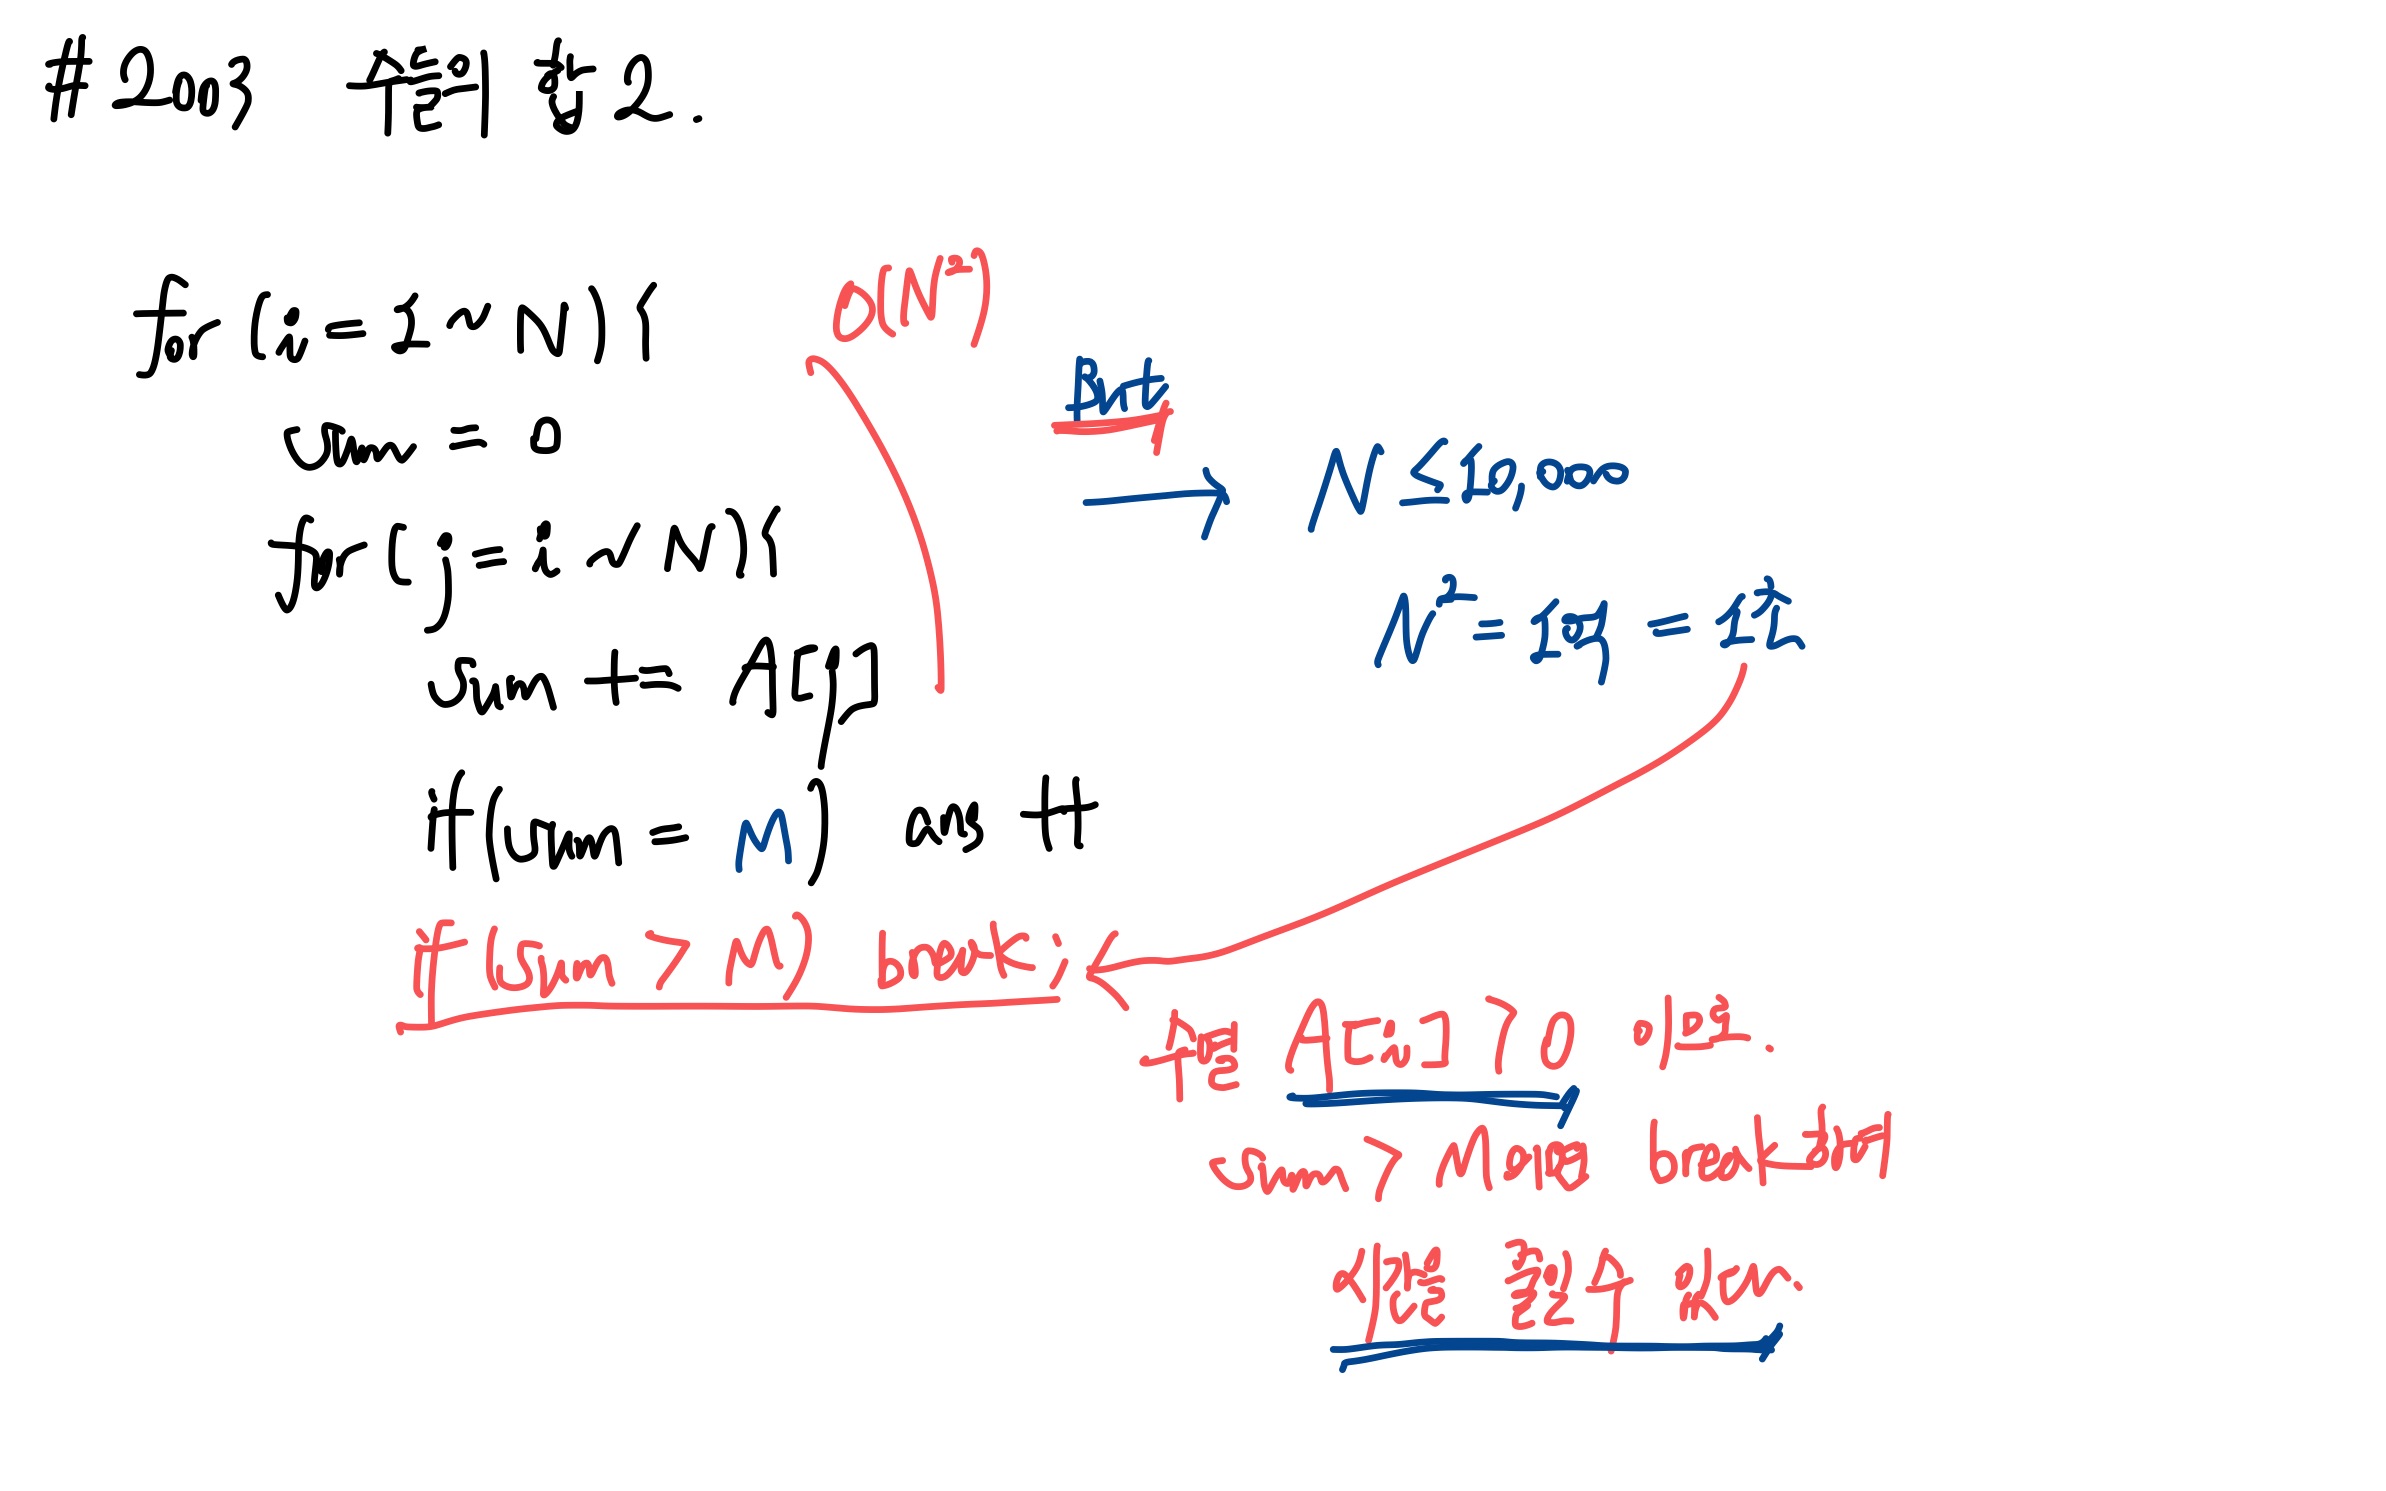 #2003 수들의 합 2.
for (i = 1 ~ N) {
sum = 0
for (j = i ~ N) {
sum += A[j]
if (sum = M) ans ++
if (sum > M) break;
O(N²)
But
→ N ≤ 10,000
N² = 1억 = 1초
수열 A[i] > 0 이므로.
sum > M이면 break 하여
시간을 줄일수 있다.